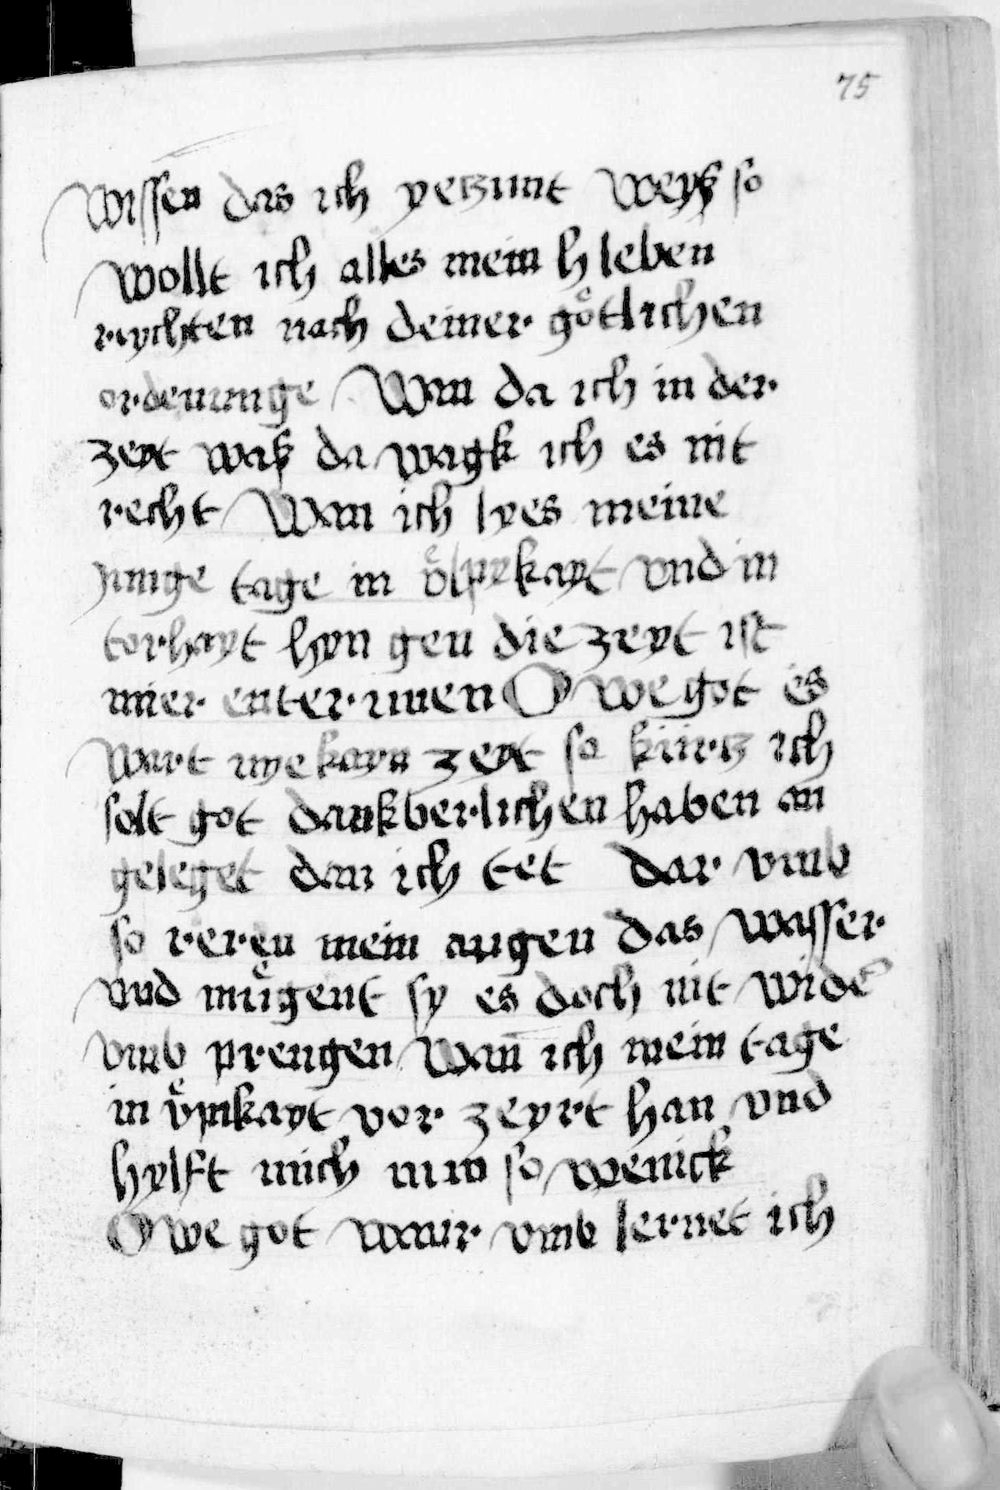 75
wissen das ich yeczunt weyß so
wollt ich alles mein h leben
rychten nach deiner götlichen
ordenunge Wan da ich in der
zeyt waß da wagk ich es nit
recht Wan ich lyes meine
junge tage in vͤlpykayt vnd in
torhayt hyn gen die zeyt ist
mier enterinnen O we got es
wart nye kayn zeyt so kürtz ich
solt got dankberlichen haben an
geleget dan ich tet dar vmb
so reren mein augen das wasser
vnd mügent sy es doch nit wider̄
vmb prengen wan̄ ich mein tage
in vͤpikayt vor zeyrt han vnd
hylft mich nun so wenick
O we got warür vmb lernet ich